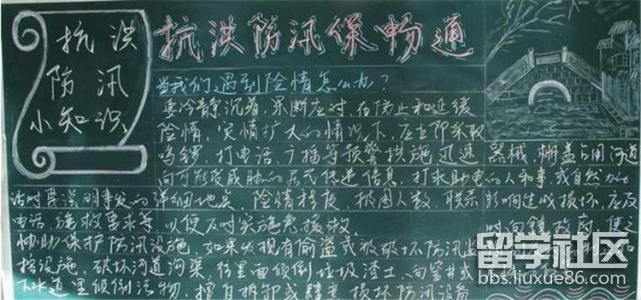 抗洪
防汛
小知识
抗洪防汛保畅通
当我们遇到险情怎么办?
要冷静沉着,果断应对,在防止和延缓
险情,灾情扩大的情况下,应立即采取
鸣锣,打电话,广播等预警措施,迅速
向可能受威胁的居民传递信息,打求助电
话时要说明事发的详细地点,险情程度,被困人数,联系
电话,施救要求等,以便及时实施救援救
协助保护防汛设施,如果发现有偷盗或被破坏防汛监
控设施,破坏河道沟渠,往里面倾倒垃圾渣土,向窨井或
下水道里倾倒污物,擅自拆卸或肆意损坏防汛设备
器械,棚盖占用河道
的人和事,或自然
影响
损坏,应及
留学社区
bbs.liuxue86.com